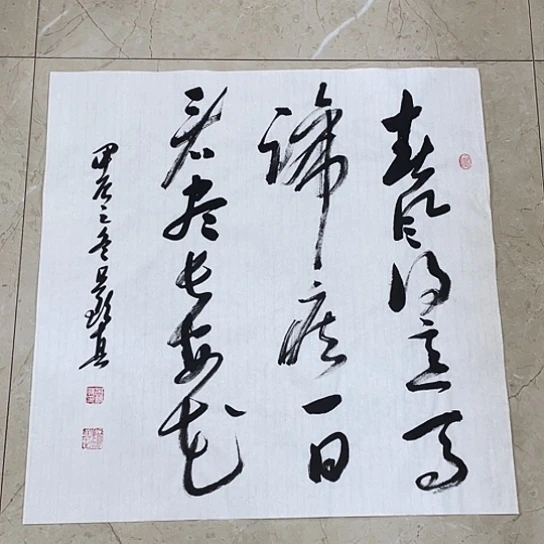 春风得意马
蹄疾一日
看尽长安花
甲辰之冬吴